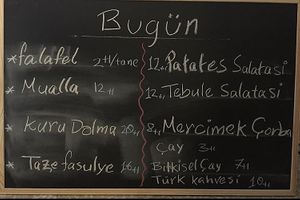 Bugün
* falafel 2tl/tane
* Mualla 12tl
* Kuru Dolma 20tl
* Taze fasulye 16tl
12tl Patates Salatasi
12tl Tebule Salatasi
8tl Mercimek Çorba
Çay 3tl
Bitkisel Çay 7tl
Türk kahvesi 10tl